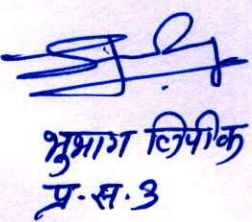 भुभाग लिपीक
प्र.स.3